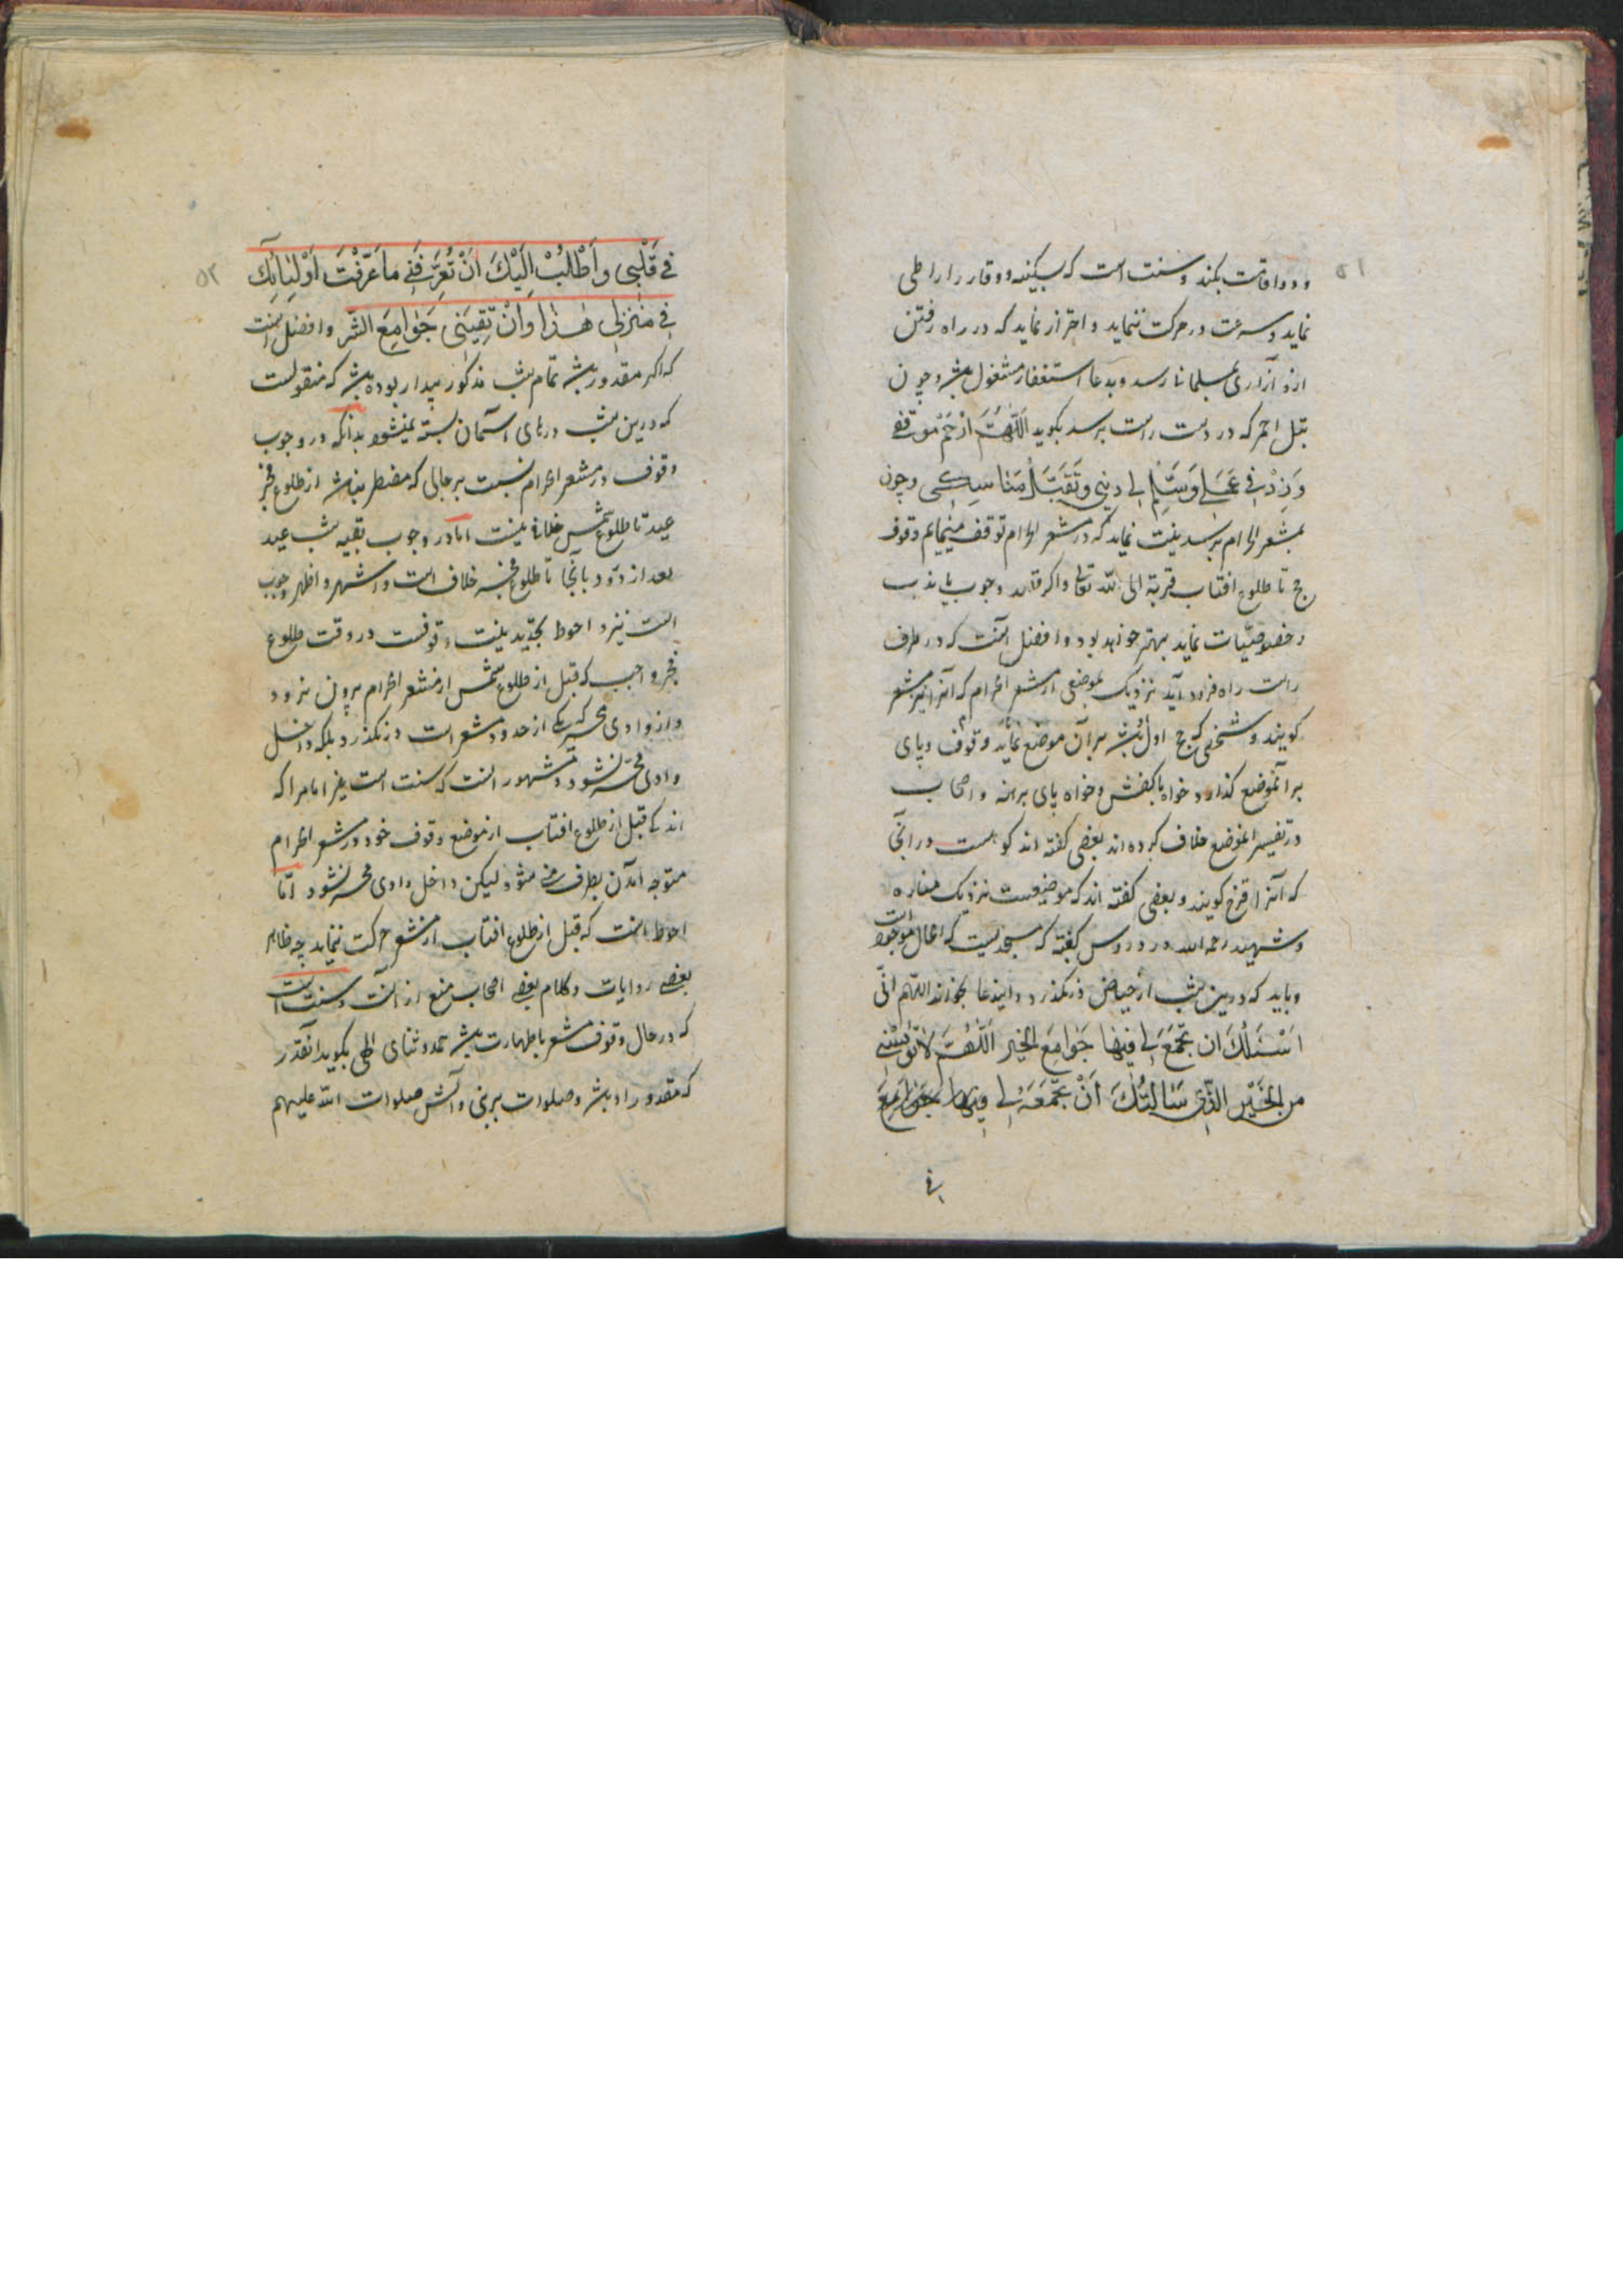 ۵۱
و دو اقامت بکند و سنت است که بسکینه و وقار راه را طی
نماید و سرعت در حرکت ننماید و احتراز نماید که در راه رفتن
ازو آزاری بمسلمانان رسد و بدعا استغفار مشغول باشد و چون
بتل احمر که در دست راست برسد بکوید اَللّهُمَّ ارْحَمْ مَوْقِفی
وَزِدْ فی عَمَلی وَسَلِّمْ لی دینی وَتَقَبَّلْ مَناسِکی و چون
بمشعر الحرام برسد نیت نماید که در مشعر الحرام توقف مینمایم وقوف
حج تا طلوع افتاب قربة الی الله تعالی و اکر قصد وجوب یا ندب
و خصوصیّات نماید بهتر خواهد بود و افضل آنست که در طرف
راست راه فرود آید نزدیک بموضعی از مشعر الحرام که آنرا نیز مشعر
کویند و شخصی که حج اول باشد بر آن موضع نماید وقوف و پای
بر آنموضع کذارد خواه با کفش و خواه پای برهنه و اصحاب
در تفسیر انموضع خلاف کرده اند بعضی کفته اند کوهیست در آنجا
که آنرا قزح کویند و بعضی کفته اند که موضعیست نزدیک مناره
و شهید رحمه الله در دروس کفته که مسجدیست که الحال موجود است
و باید که درین شب از حیاض در نکذرد و اینداعا بخواند اللّهم انّی
اَسْئَلُکَ ان تَجْمَعَ لی فیها جَوامِعَ الخیر اَللّهُمَّ لا تُؤْیِسْنی
من الخَیْرِ الّذی سَاَلْتُکَ اَنْ تَجْمَعَهُ لی فیها جَوامِعَ
فی
۵۲
فی قَلْبی وَاَطْلُبُ اِلَیْکَ اَنْ تُعَرِّفَنی ما عَرَّفْتَ اَوْلِیائَکَ
فی مَنْزِلی هذا وَاَنْ تَقِیَنی جَوامِعَ الشَّرِ و افضل آنست
که اکر مقدور باشد تمام شب مذکور بیدار بوده باشد که منقولست
که درین شب درهای آسمان بسته نمیشود بدانکه در وجوب
وقوف در مشعر الحرام نسبت برجالی که مضطر نباشد از طلوع فجر
عید تا طلوع شمس خلافی نیست امّا در وجوب بقیه شب عید
بعد از ورود بآنجا تا طلوع فجر خلاف است و اشهر و اظهر وجوب
است نیز و احوط تجدید نیت وقوفست در وقت طلوع
فجر واجب که قبل از طلوع شمس از مشعر الحرام بیرون نرود
و از وادی محسر که یکی از حدود مشعر است در نکذرد بلکه داخل
وادی محسر نشود و مشهور آنست که سنت است بغیر امام را که
اندکی قبل از طلوع افتاب از موضع وقوف خود در مشعر الحرام
متوجه آمدن بطرف منی شود لیکن داخل وادی محسر نشود امّا
احوط آنست که قبل از طلوع افتاب از مشعر حرکت ننماید چه ظاهر
بعضی روایات و کلام بعضی اصحاب منع از آنست و سنت است
که در حال وقوف مشعر با طهارت باشد حمد و ثنای الهی بکوید آنقدر
که مقدور او باشد و صلوات بر نبی و آلش صلوات الله علیهم